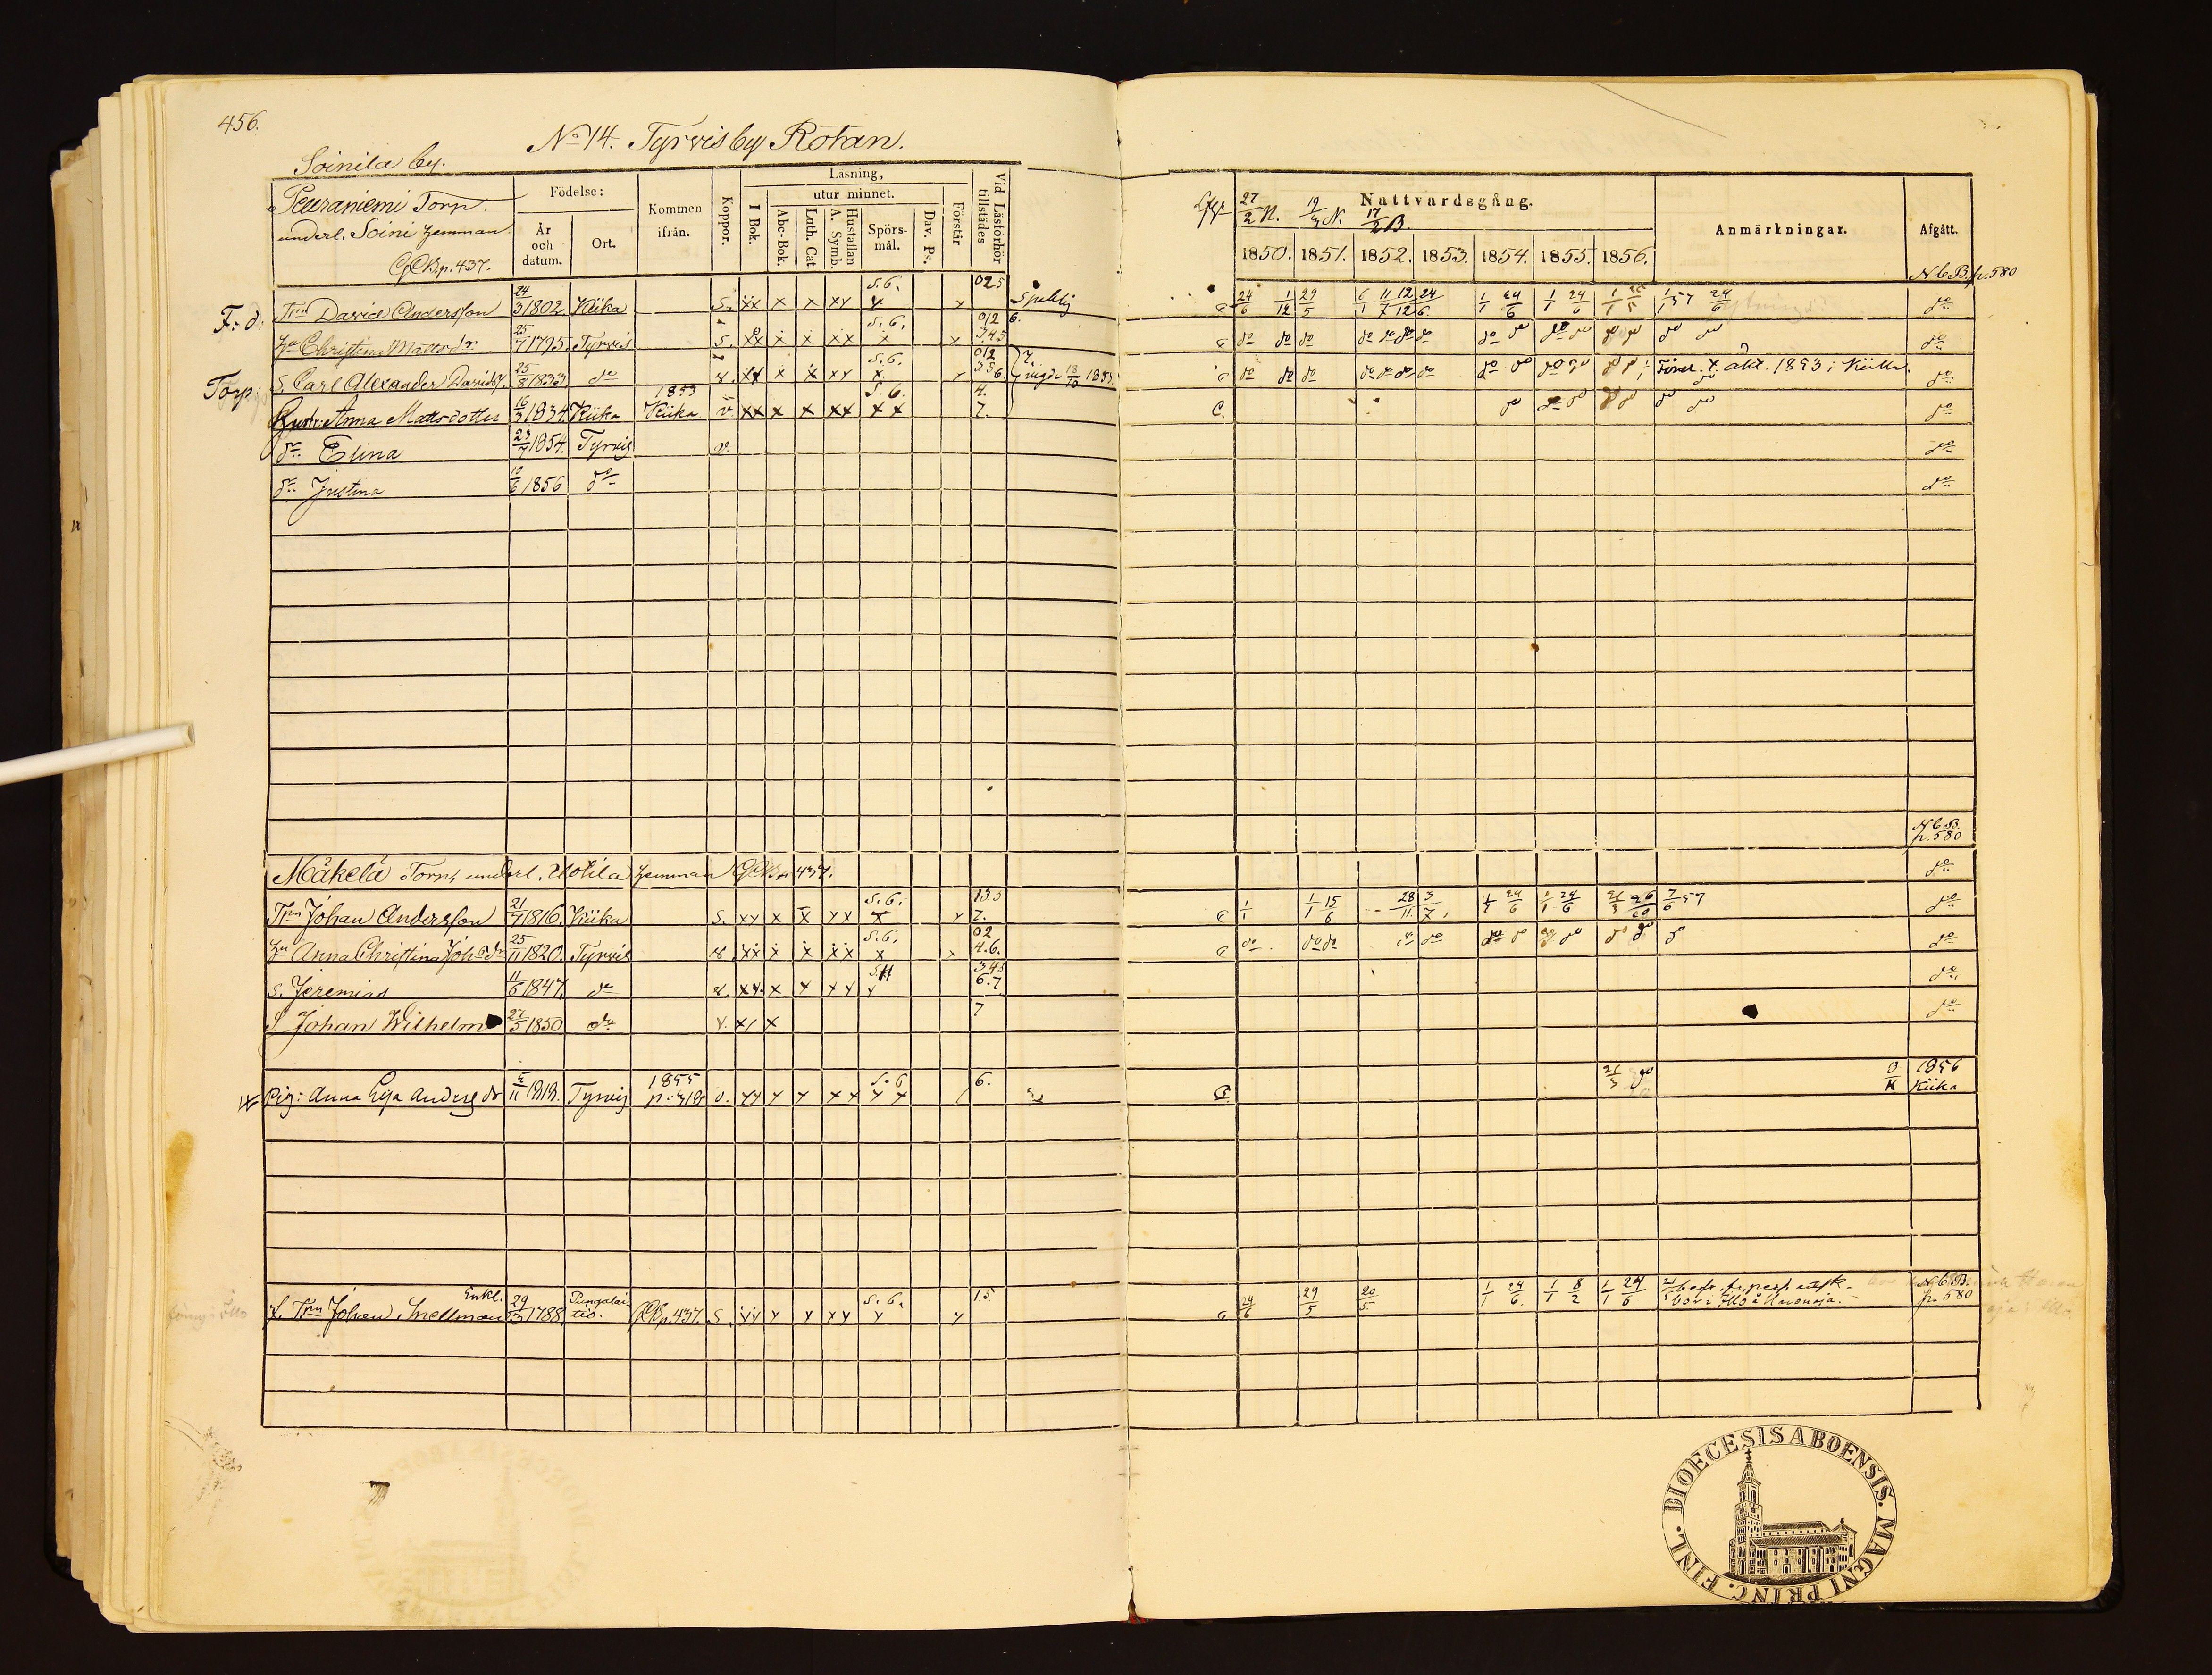 456.
No 14. Tyrvisby Rotan.
Soinila by.
Peuraniemi Torp.
underl. Soini Hemman.
GCB.p.437.
Födelse:
År och datum.
Ort.
Kommen ifrån.
Koppor.
Läsning,
I Bok.
utur minnet.
Abc-Bok.
Luth. Cat.
Hustaflan A. Symb.
Spörsmål.
Dav. Ps.
Förstår
Vid Läsförhör tillstädes
27/2 N. 19/3 N. 17/2 B
Nattvardsgång.
1850. 1851. 1852. 1853. 1854. 1855. 1856.
Anmärkningar.
Afgått.
N.C.B. p. 580
F. d. Tpn David Andersson 24/3 1802. Kiika S. xx x x xy S.6. x x 025 c 24/6 1/12 29/5 11/7 12/12 24/6 1/1 24/6 1/1 24/6 1/1 1/1 57 24/6 do
Hu Christina Mattsdr. 25/7 1795. Tyrvis S. xx x x xx S.6. x x 012 345 6. c do do do do do do do do do do do do do do do do
Torp: S. Carl Alexander Davidss. 25/8 1833 do v. xx x x xy S.6. x x 012 356. 7. vigde 18/10 1853. c do do do do do do do do do do do do do Först. t. äkt. 1853 i Kiika. do
Hustr. Anna Mattsdotter 16/3 1834. Kiika 1853 Kiika v. xx x x xx S.6. x x 4. 7. C. do do do do do do do do
dr. Elina 23/7 1854. Tyrvis v. do
dr. Justina 10/6 1856 do do
N.C.B. p. 580
Mäkelä Torp, underl. Uotila Hemman GCB.p 437. do
Tpn Johan Andersson 21/7 1816. Kiika S. xy x x yx S.6. x y 135 7. c 1/1 1/1 15/6 28/11 3/7 1/1 24/6 1/1 24/6 26/3 26/10 7/6 57 do
Hu Anna Christina Johsdr 25/11 1820. Tyrvis v. xx x x xx S.6. x x 02 4.6. c do do do do do do do do do do do do do
S. Jeremias 11/6 1847. do v. xy. x y yy y 345 6.7 do
S. Johan Wilhelm 27/5 1850 do v. x/ x 7 do
Pig: Anna Lisa Andersdr 5/11 1818. Tyrvis 1855 v. yy y y yx S.6 y y 6. C. 26/3 do 1856 Kiika
f. Tpn Johan Snellman Enkl. 29/3 1788 Pungalaitio. GCB.p.437. S. yy y y xy S.6. y y 15. c 24/6 29/5 20/5 1/1 24/6. 1/1 8/2 1/1 24/6 N.C.B. p. 580
DIOECESIS ABOENSIS. MAGNI PRINC. FINL.